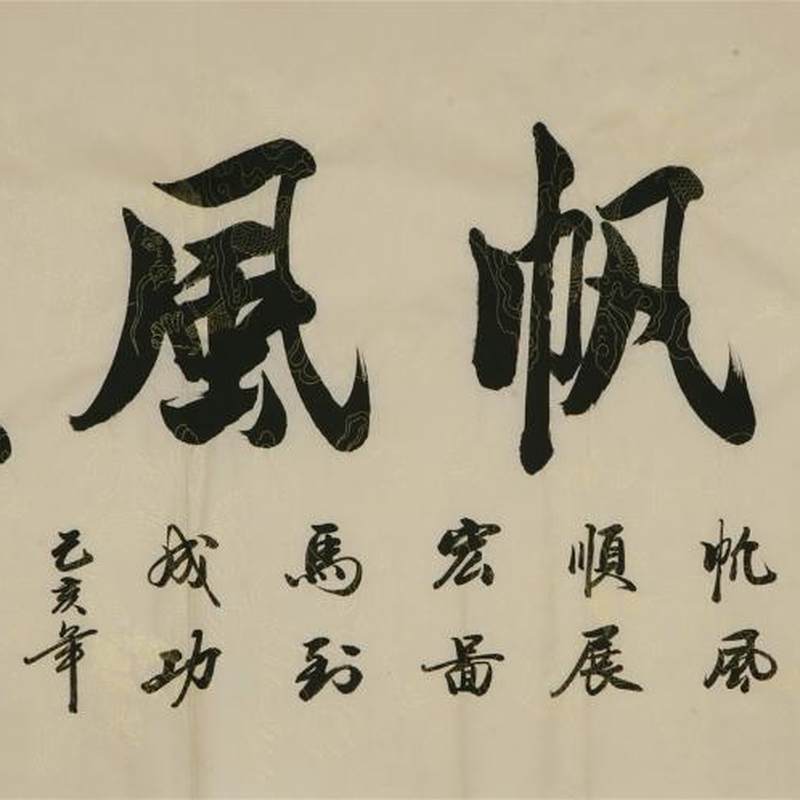 帆風
帆風
順展
宏畐
馬到
成功
己亥年